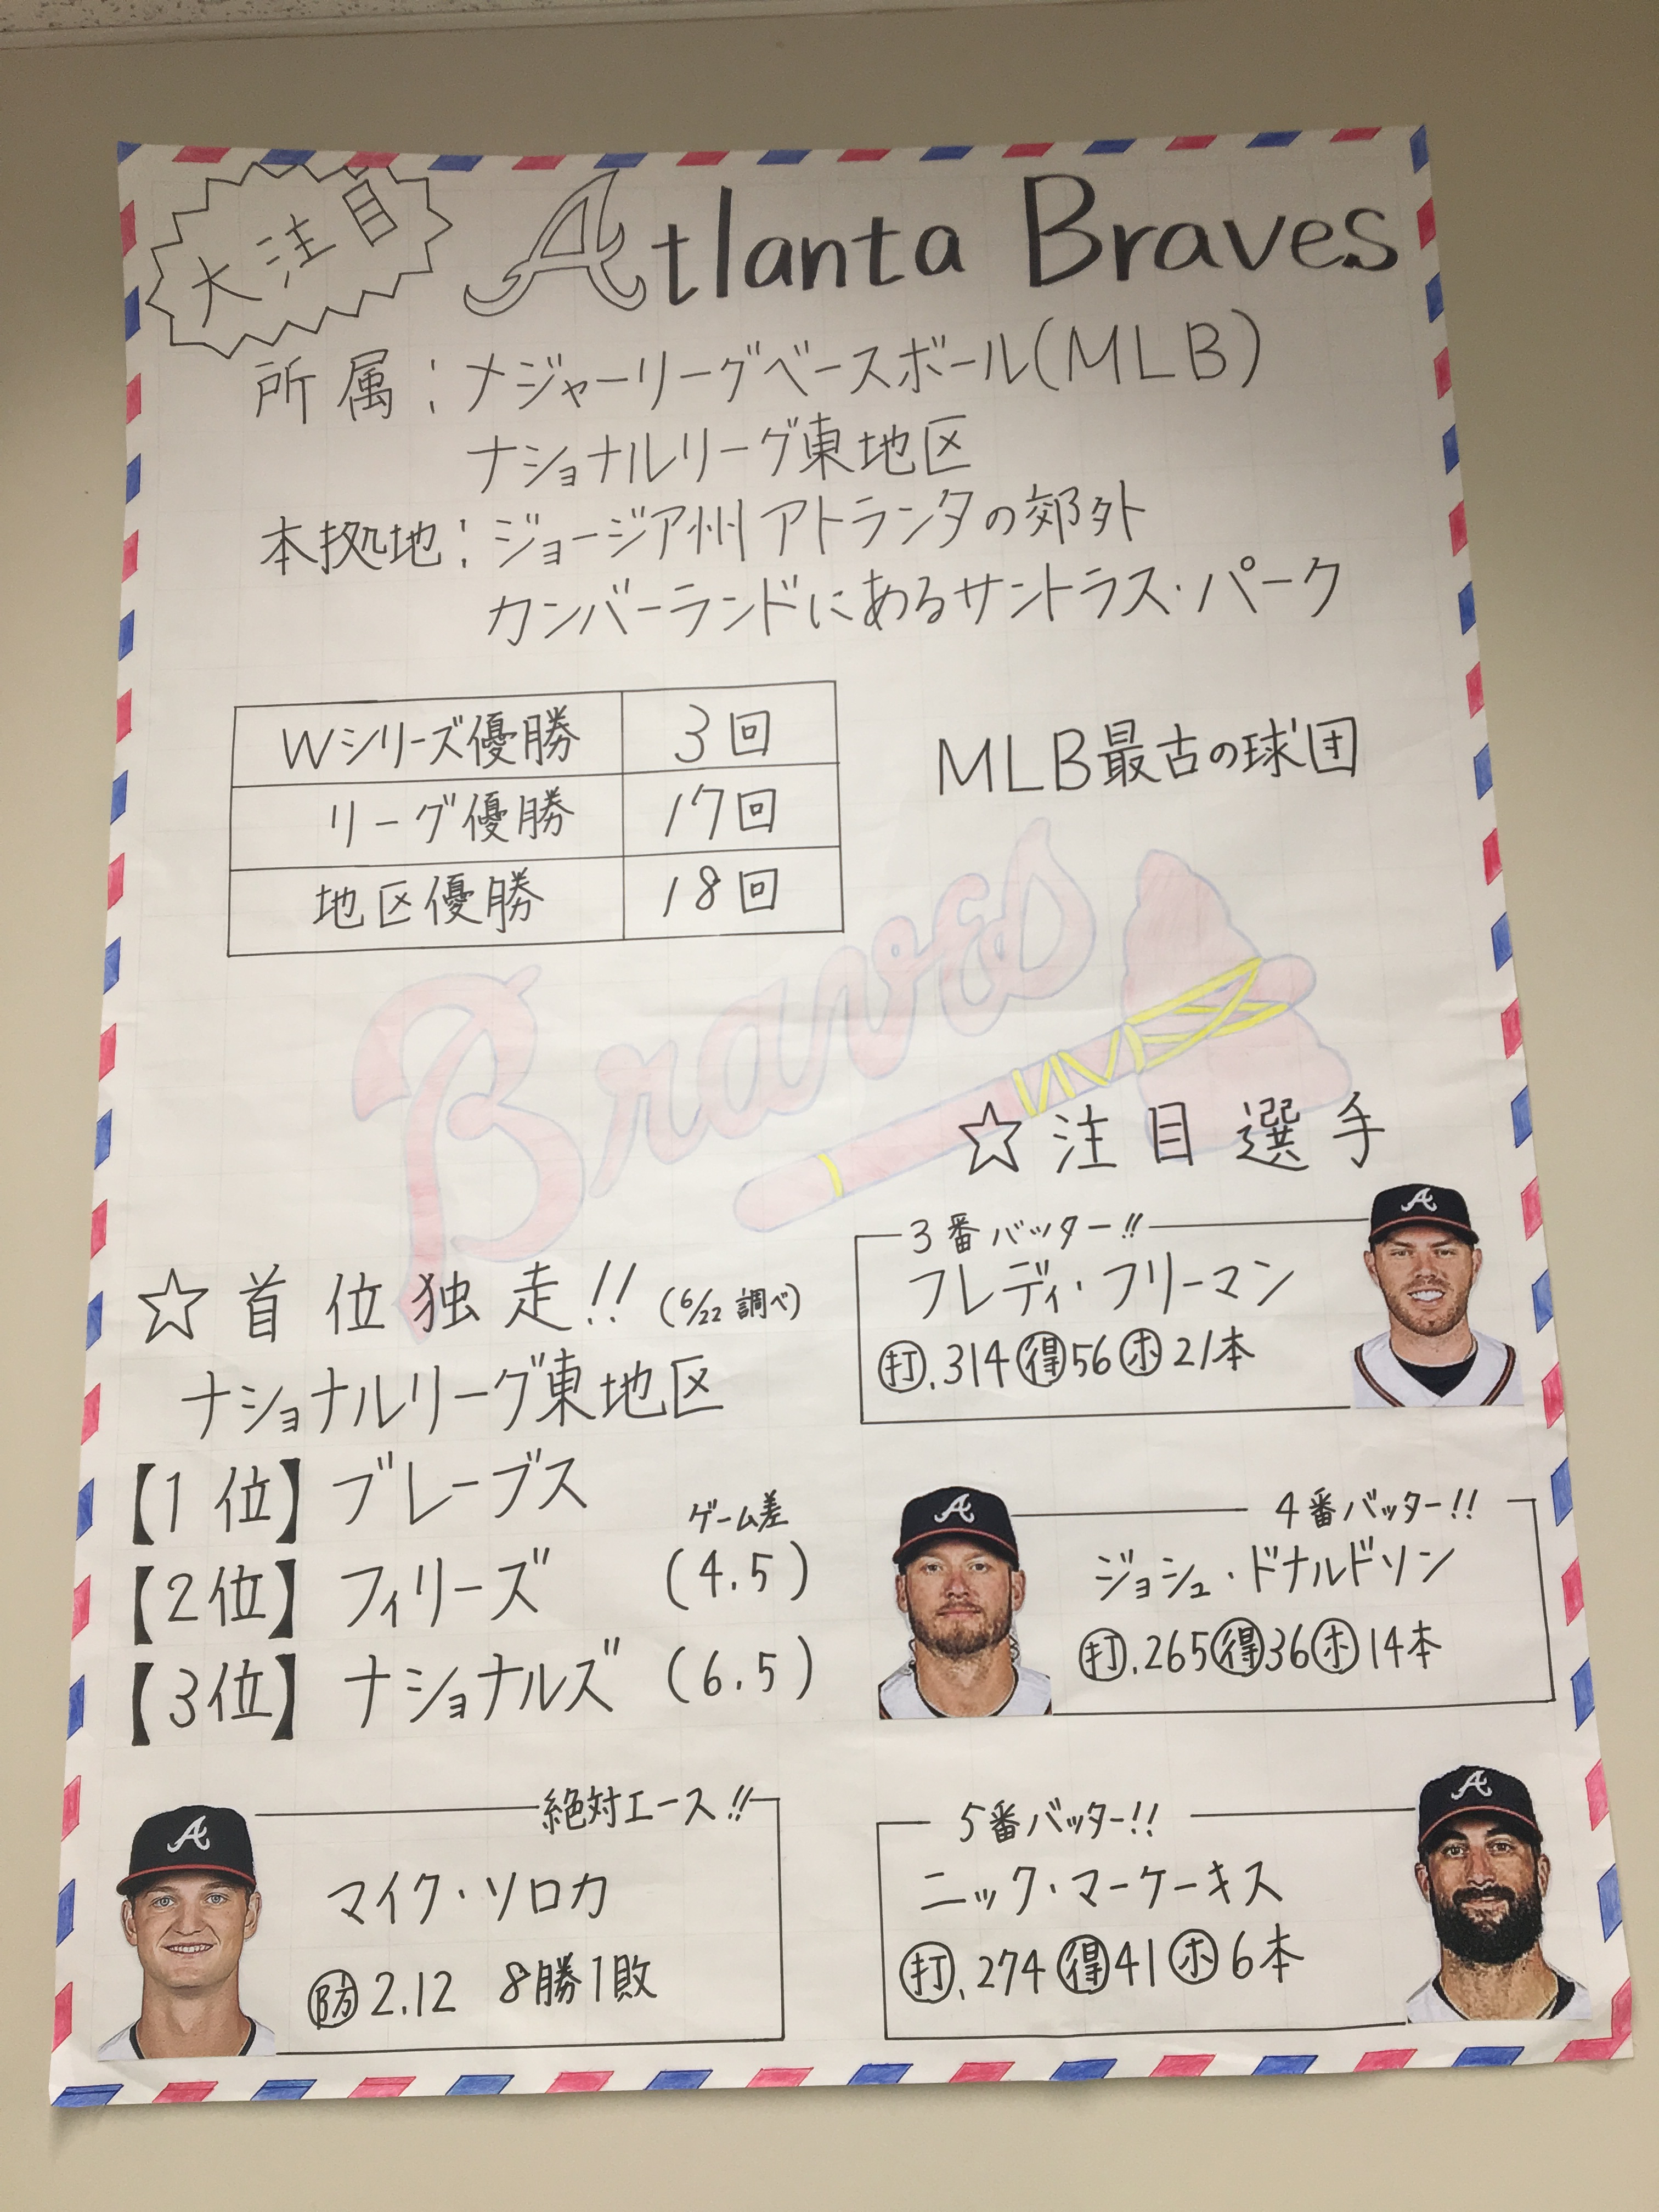 大注目
Atlanta Braves
所属:メジャーリーグベースボール(MLB)
ナショナルリーグ東地区
本拠地:ジョージア州アトランタの郊外
カンバーランドにあるサントラス・パーク
Wシリーズ優勝 3回
リーグ優勝 17回
地区優勝 18回
MLB最古の球団
Braves
☆注目選手
3番バッター!!
フレディ・フリーマン
打.314 得56 ホ21本
4番バッター!!
ジョシュ・ドナルドソン
打.265 得36 ホ14本
5番バッター!!
ニック・マーケーキス
打.274 得41 ホ6本
☆首位独走!!(6/22調べ)
ナショナルリーグ東地区
【1位】ブレーブス
ゲーム差
【2位】フィリーズ (4.5)
【3位】ナショナルズ (6.5)
絶対エース!!
マイク・ソロカ
防2.12 8勝1敗
A
A
A
A